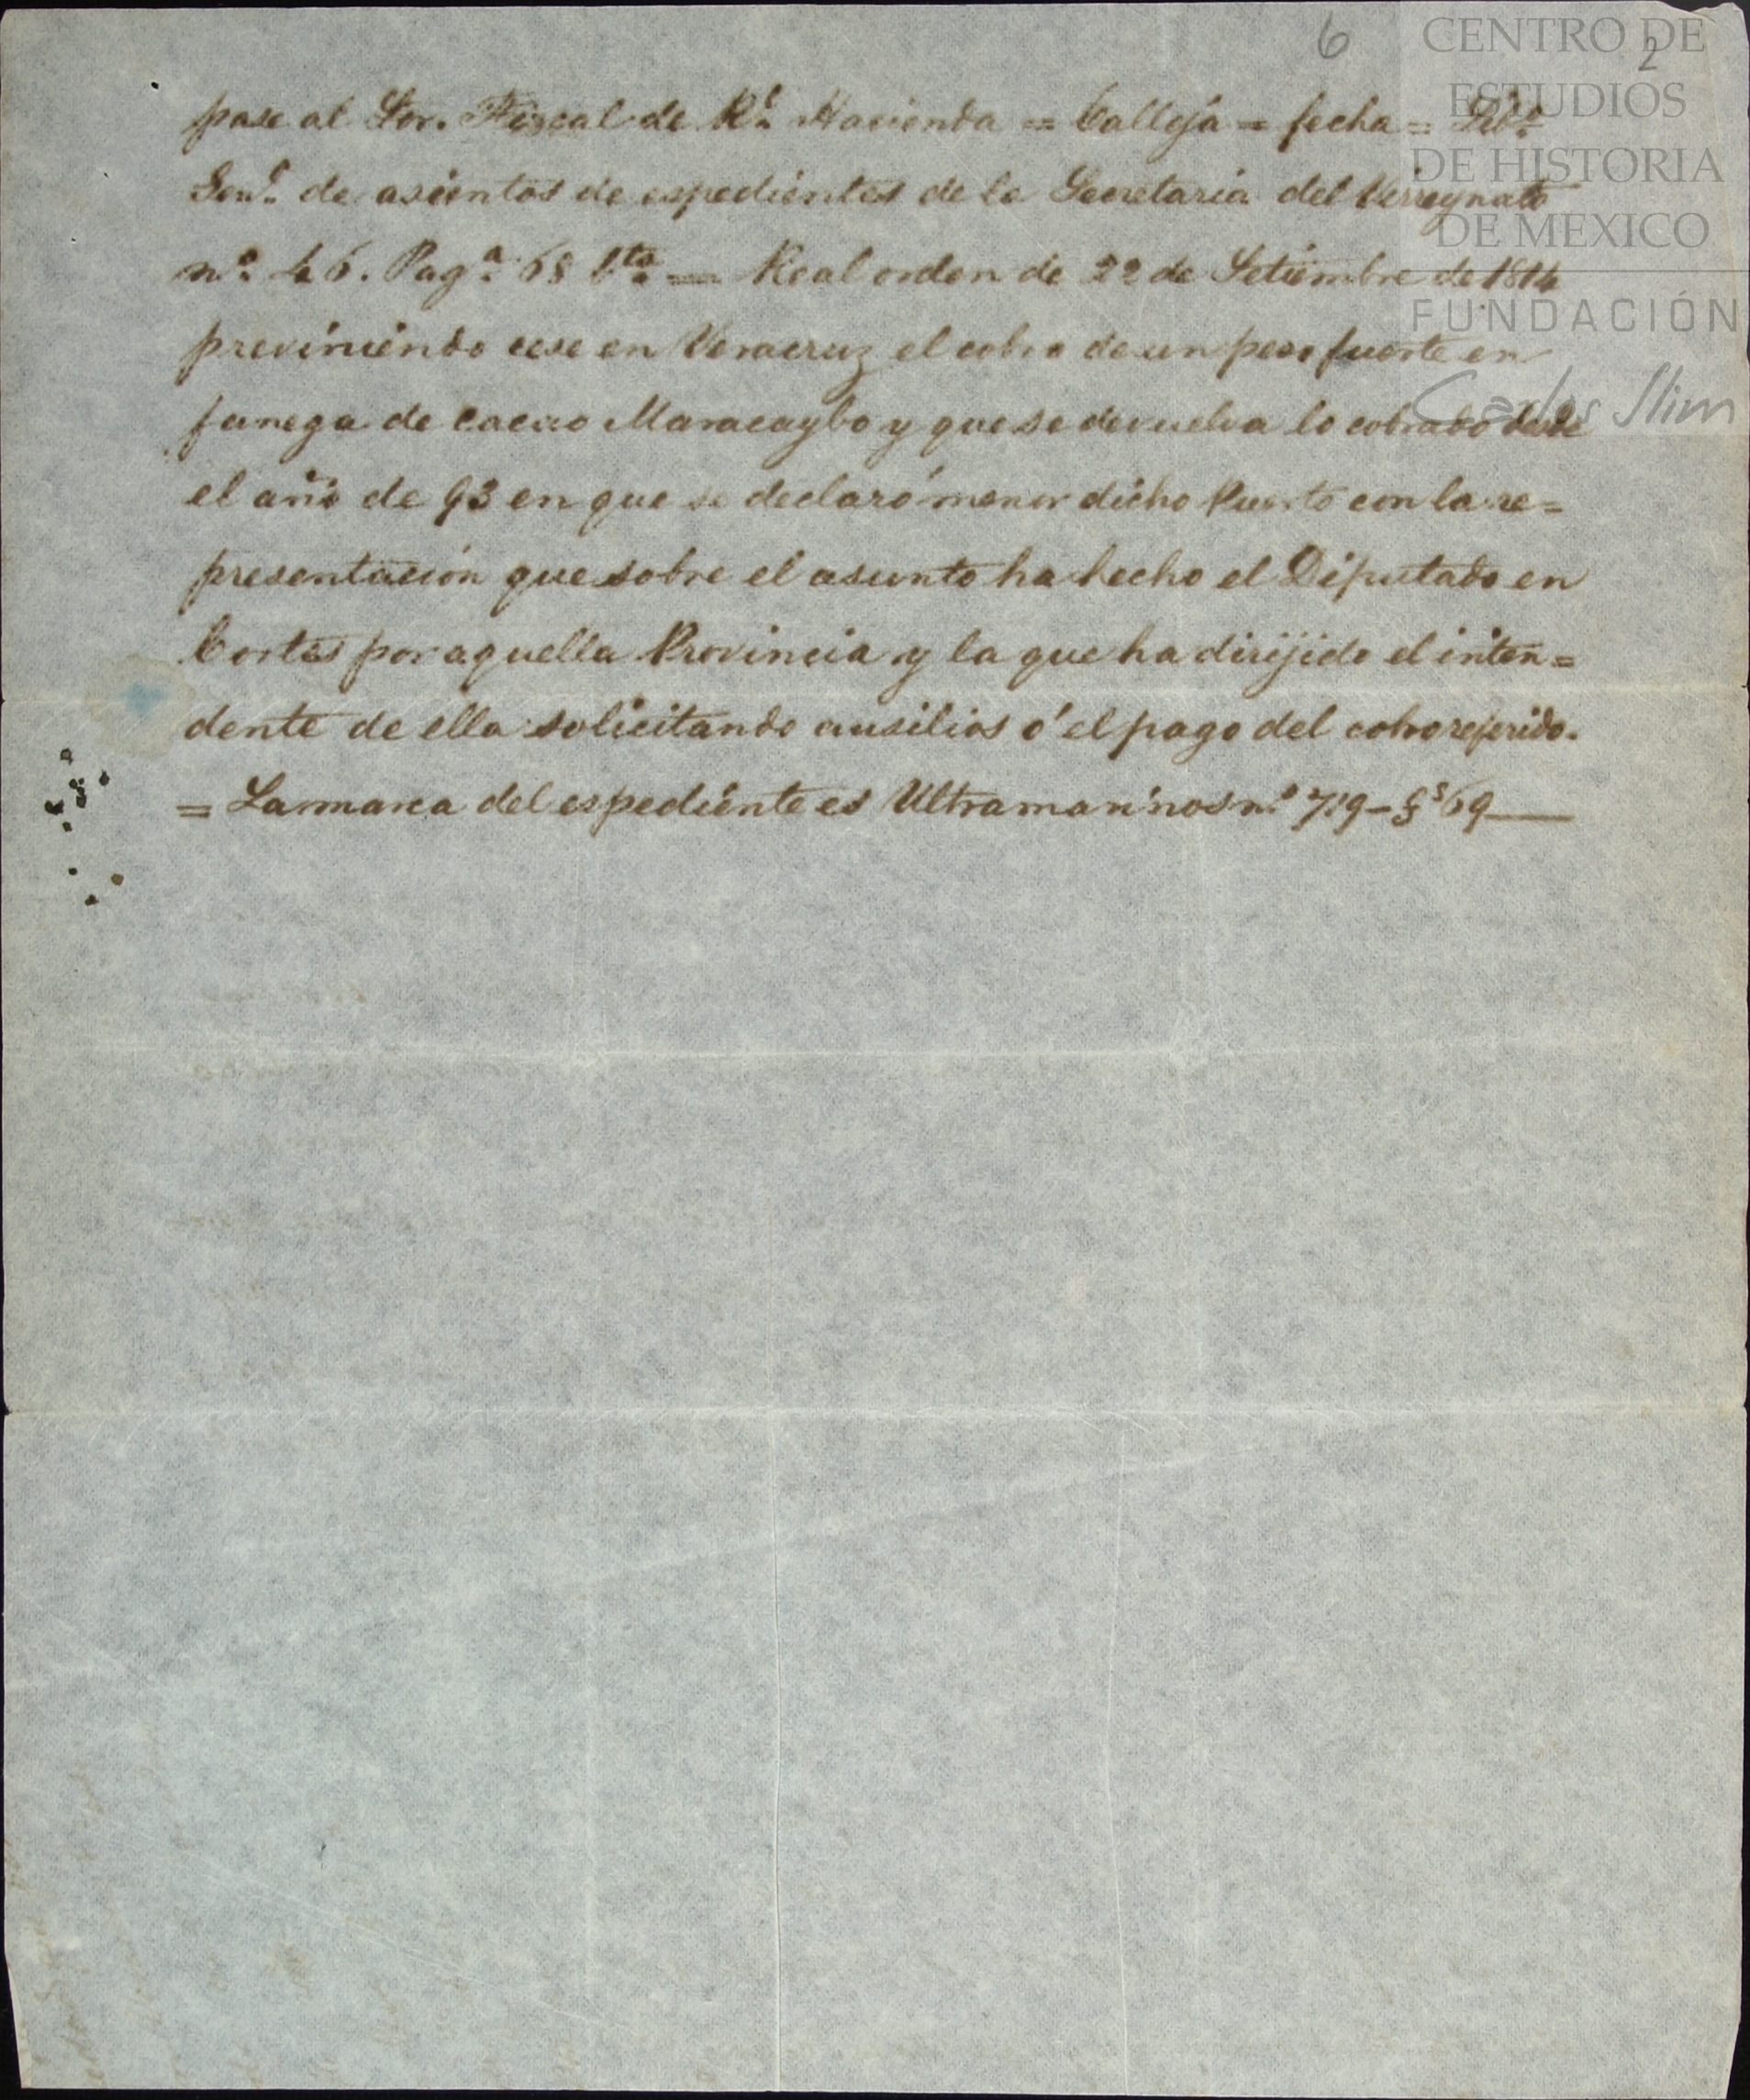 6
2
CENTRO DE
ESTUDIOS
DE HISTORIA
DE MEXICO
FUNDACIÓN
Carlos Slim
pase al Sor. Fiscal de Rl. Hacienda = Calleja = fecha = Libo.
Genl. de asientos de espedientes de la Secretaria del Virreynato
no. 46. Paga. 68 vta. = Real orden de 22 de Setiembre de 1814
previniendo cese en Veracruz el cobro de un peso fuerte en
fanega de Cacao Maracaybo y que se devuelva lo cobrado desde
el año de 93 en que se declaró menor dicho Puerto con la re=
presentación que sobre el asunto ha hecho el Diputado en
Cortes por aquella Provincia y la que ha dirijido el inten=
dente de ella solicitando ausilios ó el pago del cobro referido.
= La marca del espediente es Ultramarinos no. 7,,9 - fs 69